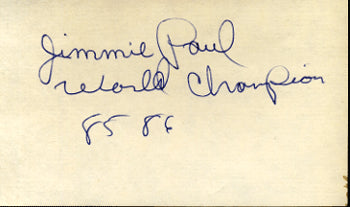 Jimmie Paul
World Champion
85 86